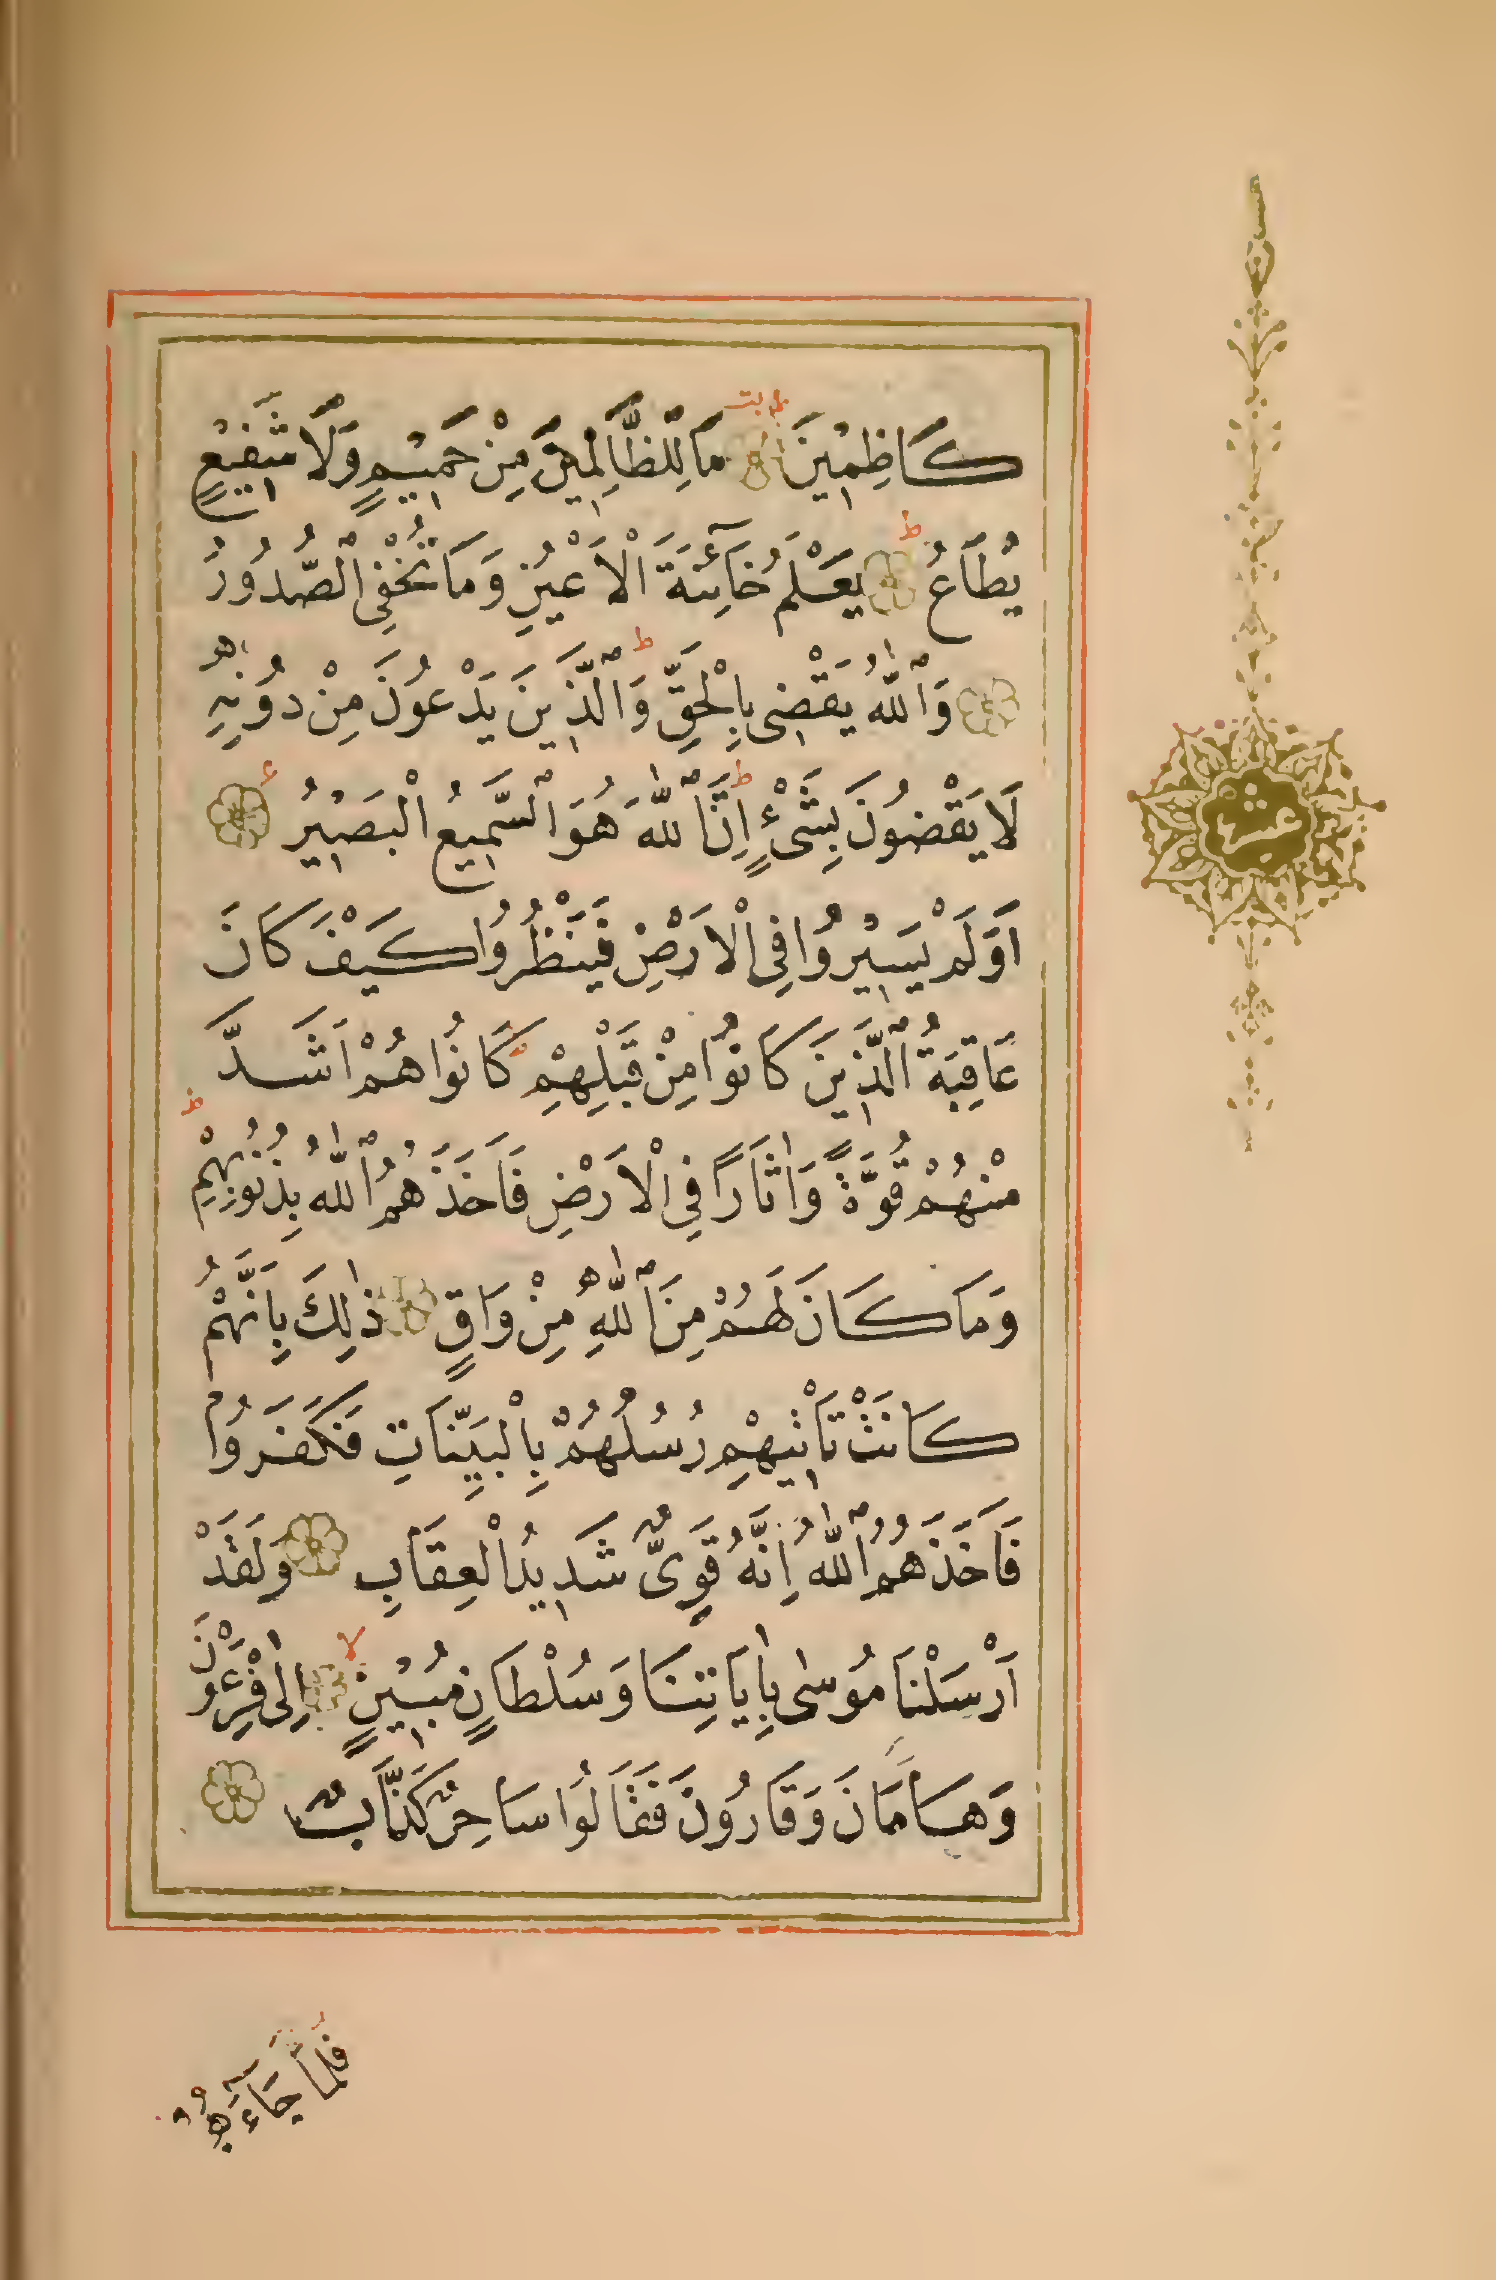 كَاظِمِينَ مَا لِلظَّالِمِينَ مِنْ حَمِيمٍ وَلَا شَفِيعٍ
يُطَاعُ يَعْلَمُ خَائِنَةَ الْاَعْيُنِ وَمَا تُخْفِى الصُّدُورُ
وَاللّٰهُ يَقْضِى بِالْحَقِّ وَالَّذِينَ يَدْعُونَ مِنْ دُونِهِ
لَا يَقْضُونَ بِشَىْءٍ اِنَّ اللّٰهَ هُوَ السَّمِيعُ الْبَصِيرُ
اَوَلَمْ يَسِيرُوا فِى الْاَرْضِ فَيَنْظُرُوا كَيْفَ كَانَ
عَاقِبَةُ الَّذِينَ كَانُوا مِنْ قَبْلِهِمْ كَانُوا هُمْ اَشَدَّ
مِنْهُمْ قُوَّةً وَاٰثَارًا فِى الْاَرْضِ فَاَخَذَهُمُ اللّٰهُ بِذُنُوبِهِمْ
وَمَا كَانَ لَهُمْ مِنَ اللّٰهِ مِنْ وَاقٍ ذٰلِكَ بِاَنَّهُمْ
كَانَتْ تَاْتِيهِمْ رُسُلُهُمْ بِالْبَيِّنَاتِ فَكَفَرُوا
فَاَخَذَهُمُ اللّٰهُ اِنَّهُ قَوِىٌّ شَدِيدُ الْعِقَابِ وَلَقَدْ
اَرْسَلْنَا مُوسٰى بِاٰيَاتِنَا وَسُلْطَانٍ مُبِينٍ اِلٰى فِرْعَوْنَ
وَهَامَانَ وَقَارُونَ فَقَالُوا سَاحِرٌ كَذَّابٌ
فَلَمَّا جَاءَهُمْ